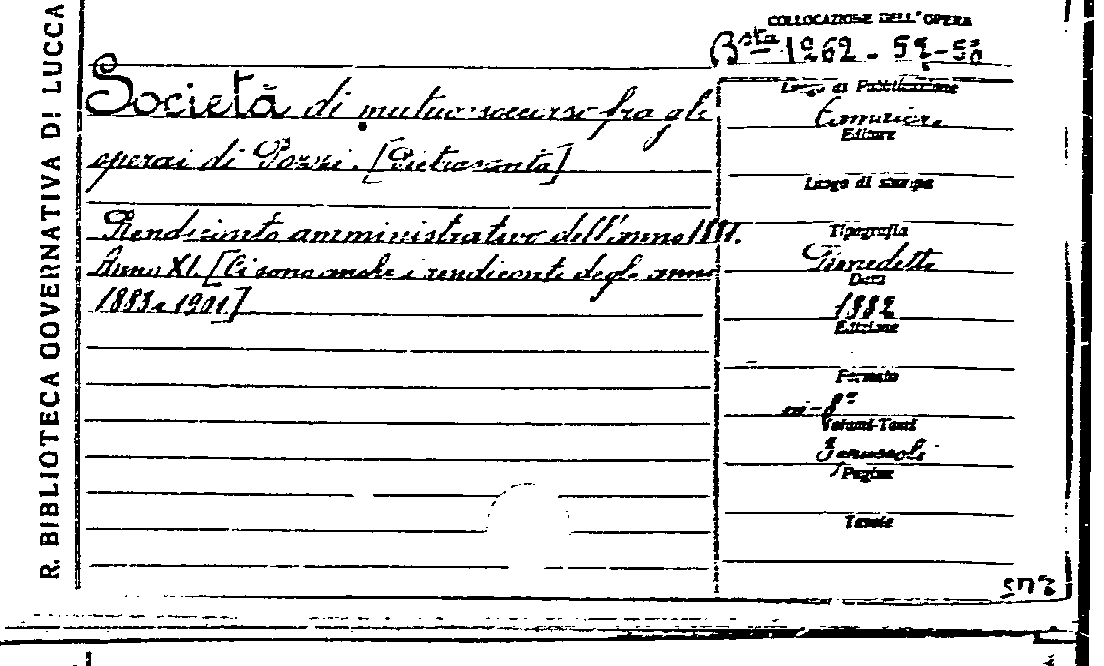 R. BIBLIOTECA GOVERNATIVA DI LUCCA
COLLOCAZIONE DELL'OPERA
Bsta 1262 - 52-58
Società di mutuo soccorso fra gli
operai di Pozzi. [Pietrasanta]
Rendiconto amministrativo dell'anno 1881.
Anno XI. [Ci sono anche i rendiconti degli anni
1883 e 1901]
Luogo di Pubblicazione
Editore
Luogo di stampa
Tipografia
Benedetti
Data
1882
Edizione
Formato
in-8°
Volumi-Tomi
3 Fascicoli
Pagine
Tavole